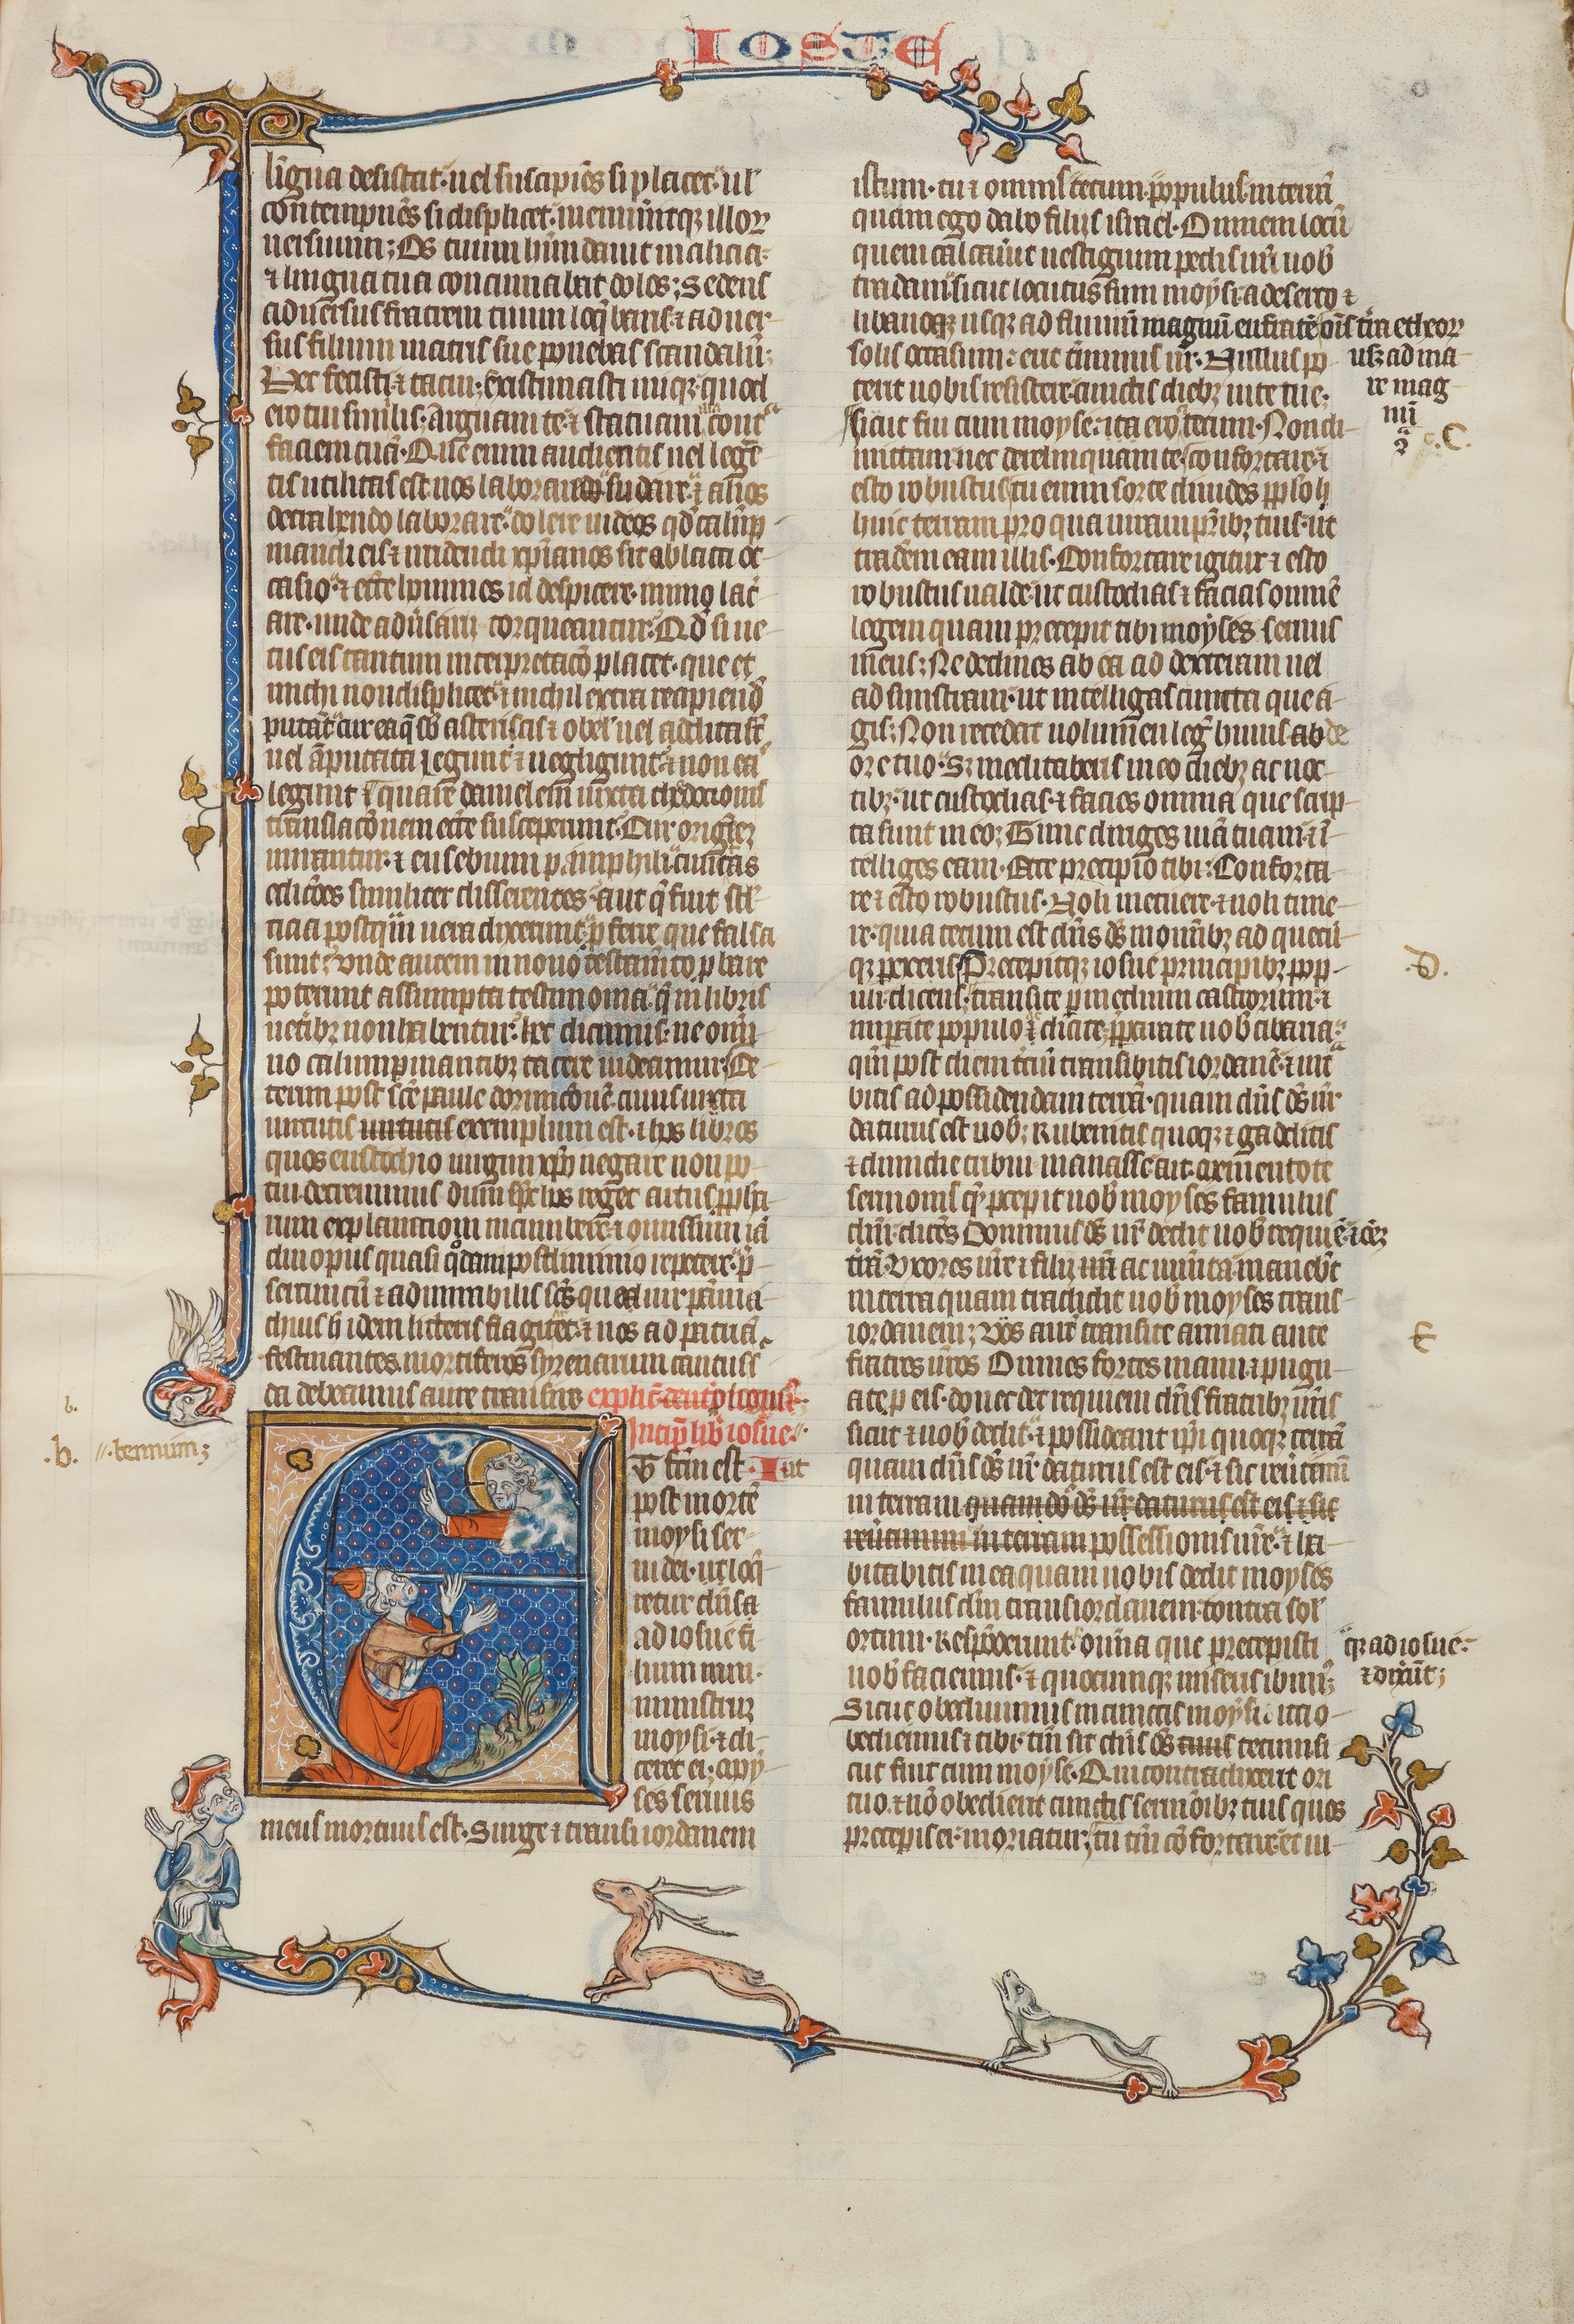 IOSUE
ligua desistat· uel suscipiēs si placet· ul'
contempnēs si displicet· meminitqꝫ illoꝝ
uersuum; Os tuum habundauit malicia·
⁊ lingua tua concinnabat dolos; Sedens
aduersus fratrem tuum loq̄baris· ⁊ aduer-
sus filium matris tue ponebas scandalū;
Hec fecisti· ⁊ tacui; Existimasti iniqꝫ· quod
ero tui similis· arguam te· ⁊ statuam cont̃
faciem tuā· Que enim audientis uel legē-
tis utilitas est· nos laborando sudare· ⁊ alios
detrahendo laborare· dolere iudeos qd' calūp-
niandi eis ⁊ irridendi xp̄ianos sit ablata oc-
casio· ⁊ eccl̄e homines id despicere· immo lac̄-
are· unde aduersarii torqueantur· Qd' si ue-
tus eis tantum interpretaco placet· que et
michi non displicet· ⁊ nichil extra recipiend'
putāt· cur ea q̄ sb' asteriscis ⁊ obel' uel addita st̄
uel āputata legunt ⁊ negligunt· ⁊ non ea
legunt· quare danielem iuxta theodotionis
translacōnem eccl̄e susceperunt· Cur origenē
mirantur· ⁊ eusebium pamphili· cunctas
edicōes similiter disserentes· aut q̄ fuit stl'-
ticia postq̄m uera dixerunt· p̄ferre que falsa
sunt· Vnde autem in nouo testam̄to pbare
poterunt assumpta testimonia· q̄ in libris
uet̄ibꝫ non habentur· hec dicimus· ne omi-
no calumpniantibꝫ tacere uideamur; Ce-
terum post sc̄e paule dormicōnē· cuius uita
uirtutis uirtutis exemplum est· ⁊ hos libros
quos eustochio uirgini xp̄i negare non po-
tui· decreuimus dum sp̄c hos reget artus· pph̄a-
rum explanationi incumbere· ⁊ omissum iā
diu opus quasi q̊dam postliminio repetere· p̄-
sertim cū ⁊ admirabilis sc̄s que uir pāma-
chius h idem litteris flagitet· ⁊ nos ad patriā
festinantes· mortiferos syrenarum cantus s'-
da debeamus aure transire explic̄
Incip̄ lib' iosue
Et fcm̄ est· ut
post mortē
moysi ser-
ui dei· ut loq̄-
retur dn̄s
ad iosue fi-
lium nun·
ministrꝫ
moysi· ⁊ di-
ceret ei; Moy-
ses seruus
meus mortuus est· Surge ⁊ transi iordanem
istum· tu ⁊ omnis tecum· populus in terrā
quam ego dabo filiis israel· Omnem locū
quem calcau'it uestigium pedis uri uob'
tradam· sicut locutus sum moysi· a deserto ⁊
libanoqꝫ usqꝫ ad fluuiū magnū eufratē· oīs tr̄a etheoꝝ
usꝫ ad ma-
re mag
nū
solis occasum· ⁊ erit t̄minus ur̄· Nullus po-
terit uobis resistere· cunctis diebꝫ uite tue;
sicut fui cum moyse· ita ero tecum· Non di-
C.
mittam nec derelinquam te· confortare· ⁊
esto robustus· tu enim sorte diuides pp̄lo h
huic terram· pro qua iuraui pr̄ibꝫ tuis· ut
traderem eam illis· Confortare igitur ⁊ esto
robustus ualde· ut custodias ⁊ facias omnē
legem quam precepit tibi moyses seruus
meus; Ne declines ab ea ad dexteram uel
ad sinistram· ut intelligas cuncta que a-
gis; Non recedat uolumen leg̃ huius ab de
ore tuo· Sꝫ meditaberis in eo diebꝫ ac noc-
tibꝫ· ut custodias· ⁊ facies omnia que scrip-
ta sunt in eo; Tunc diriges uiā tuam· ⁊ ī-
telliges eam· Ecce precipio tibi· Conforta-
re ⁊ esto robustus· Noli metuere· ⁊ noli time-
re· quia tecum est dn̄s ds̄ in omībꝫ ad quecū-
qꝫ perrexeris; Precepitqꝫ iosue principibꝫ pop-
.D.
uli· dicens; transite p medium castrorum· ⁊
imperate populo ⁊ dicite· pparate uob' cibaria·
qm̄ post diem t̄ciū transibitis iordanē· ⁊ int̃-
bitis ad possidendam terrā· quam dn̄s ds̄ ur̄
daturus est uob'; Rubenitis quoqꝫ ⁊ gaditis
⁊ dimidie tribui manasse ait· mementote
sermonis q̄ precepit uob' moyses famulus
dn̄i· dicēs· Dominus ds̄ ur̄ dedit uob' requiē· ⁊ oēꝫ
tr̄ā· Vxores ur̄e ⁊ filii ur̄i ac iumēta· manebt̄
in terra quam tradidit uob' moyses trans-
iordanem; Vos autē transite armati ante
E
fratres ur̄os· Omnes fortes manu· ⁊ pugn-
ate p eis· donec det requiem dn̄s fratribꝫ ur̄is
sicut ⁊ uob' dedit· ⁊ possideant ip̄i quoqꝫ terrā
b.
.b. //· bennum;
quam dn̄s ds̄ ur̄ daturus est eis· ⁊ sic reūtemini
in terram quam dn̄s ds̄ ur̄ daturus est eis ⁊ sic
reūtamini in terram possessionis ur̄e· ⁊ ha-
bitabitis in ea quam uobis dedit moyses
famulus dn̄i trans iordanem· contra sol'
ortum· Respōderunt· om̄ia que precepisti
qꝫ ad iosue·
⁊ dixūt;
nob' faciemus· ⁊ quocumqꝫ miseris ibim';
Sicut obediuimus in cunctis moysi· ita o-
bediemus ⁊ tibi· tm̄ sit dn̄s ds̄ tuus tecum si-
cut fuit cum moyse· Qui contradixerit ori
tuo· ⁊ nō obedierit cunctis sermōibꝫ tuis quos
preceperis ei· moriatur; tu tm̄ cōfortare· et ui-